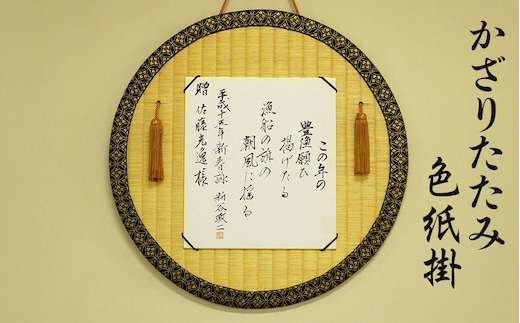 かざりたたみ
色紙掛
この年の
豊漁願ひ
揚げたる
漁船の旗の
朝風に揺る
平成十五年 新春詠 新谷
贈 佐藤 様